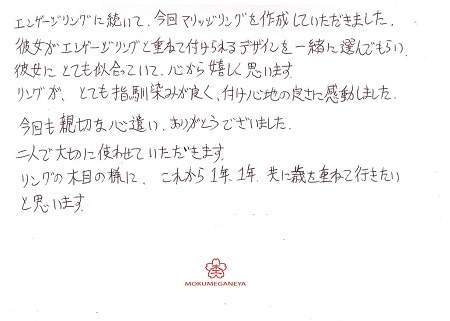 エンゲージリングに続いて、今回マリッジリングを作成していただきました。
彼女がエンゲージリングと重ねて付けられるデザインを一緒に選んでもらい、
彼女にとても似合っていて、心から嬉しく思います。
リングが、とても指馴染みが良く、付け心地の良さに感動しました。
今回も親切な心遣い、ありがとうございました。
二人で大切に使わせていただきます。
リングの木目の様に、これから1年、1年、共に歳を重ねて行きたい
と思います。
MOKUMEGANEYA